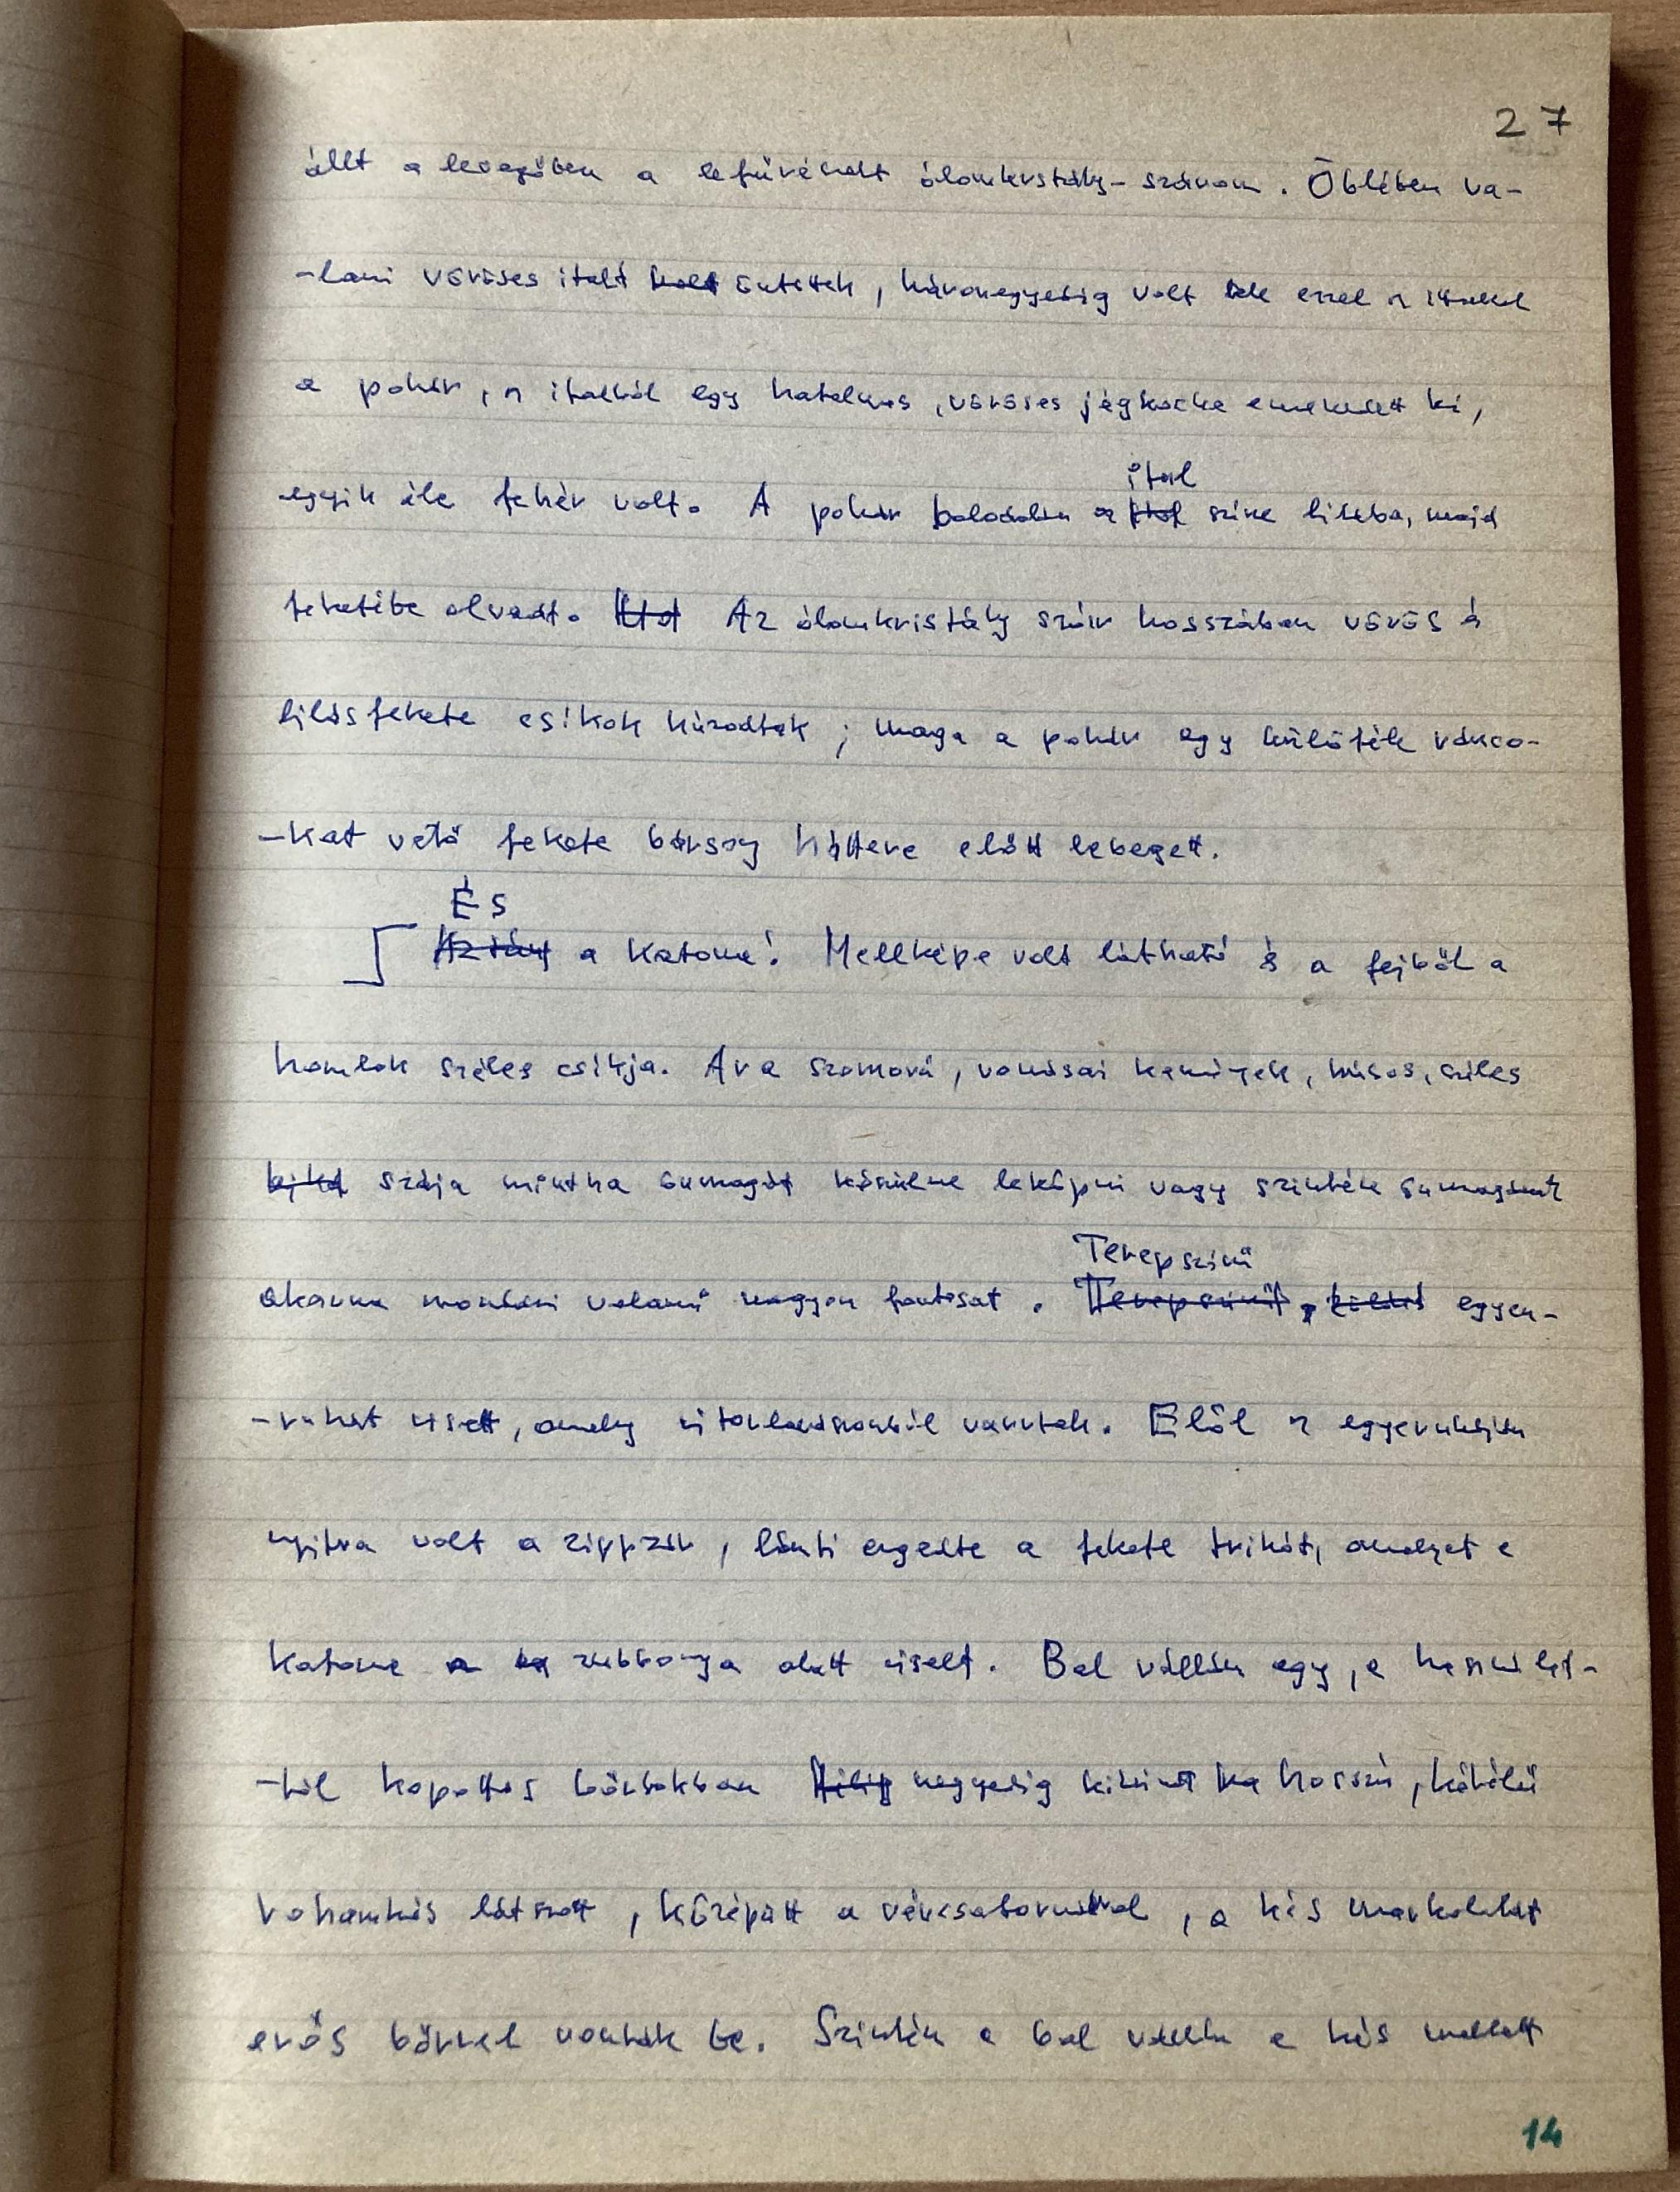 27
állt a levegőben a lefűrészelt ólomkristály-száron. Öblében va-
-lami vöröses italt öntöttek, háromnegyedig volt tele ezzel az itallal
a pohár, az italból egy hatalmas, vöröses jégkocka emelkedett ki,
egyik éle fehér volt. A pohár baloldalán az ital
színe lilába, majd
feketébe olvadt. Az ólomkristály szár hosszában vörös és
lilásfekete csíkok húzódtak; maga a pohár egy különféle ránco-
-kat vető fekete bársony háttere előtt lebegett.
És
a Katona! Mellképe volt látható és a fejből a
homlok széles csíkja. Arca szomorú, vonásai kemények, húsos, széles
szája mintha önmagát készülne leköpni vagy szintén önmagának
Terepszínű
akarna mondani valami nagyon fontosat. egyen-
-ruhát viselt, amely vitorlavászonból varrtak. Elöl az egyenruháján
nyitva volt a zippzár, látni engedte a fekete trikót, amelyet a
katona zubbonya alatt viselt. Bal vállán egy, a használat-
-tól kopottas bőrtokban negyedig kihúzott hosszú, kétélű
rohamkés látszott, középütt a vércsatornával, a kés markolatát
erős bőrrel vonták be. Szintén a bal vállán a kés mellett
14